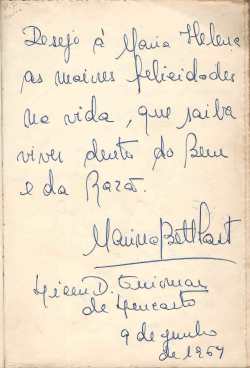 Desejo à Maria Helena
as maiores felicidades
na vida, que saiba
viver dentro do Bem
e da Razão.
Marina
Liceu D. Guiomar
de Lencastre
9 de junho
de 1967